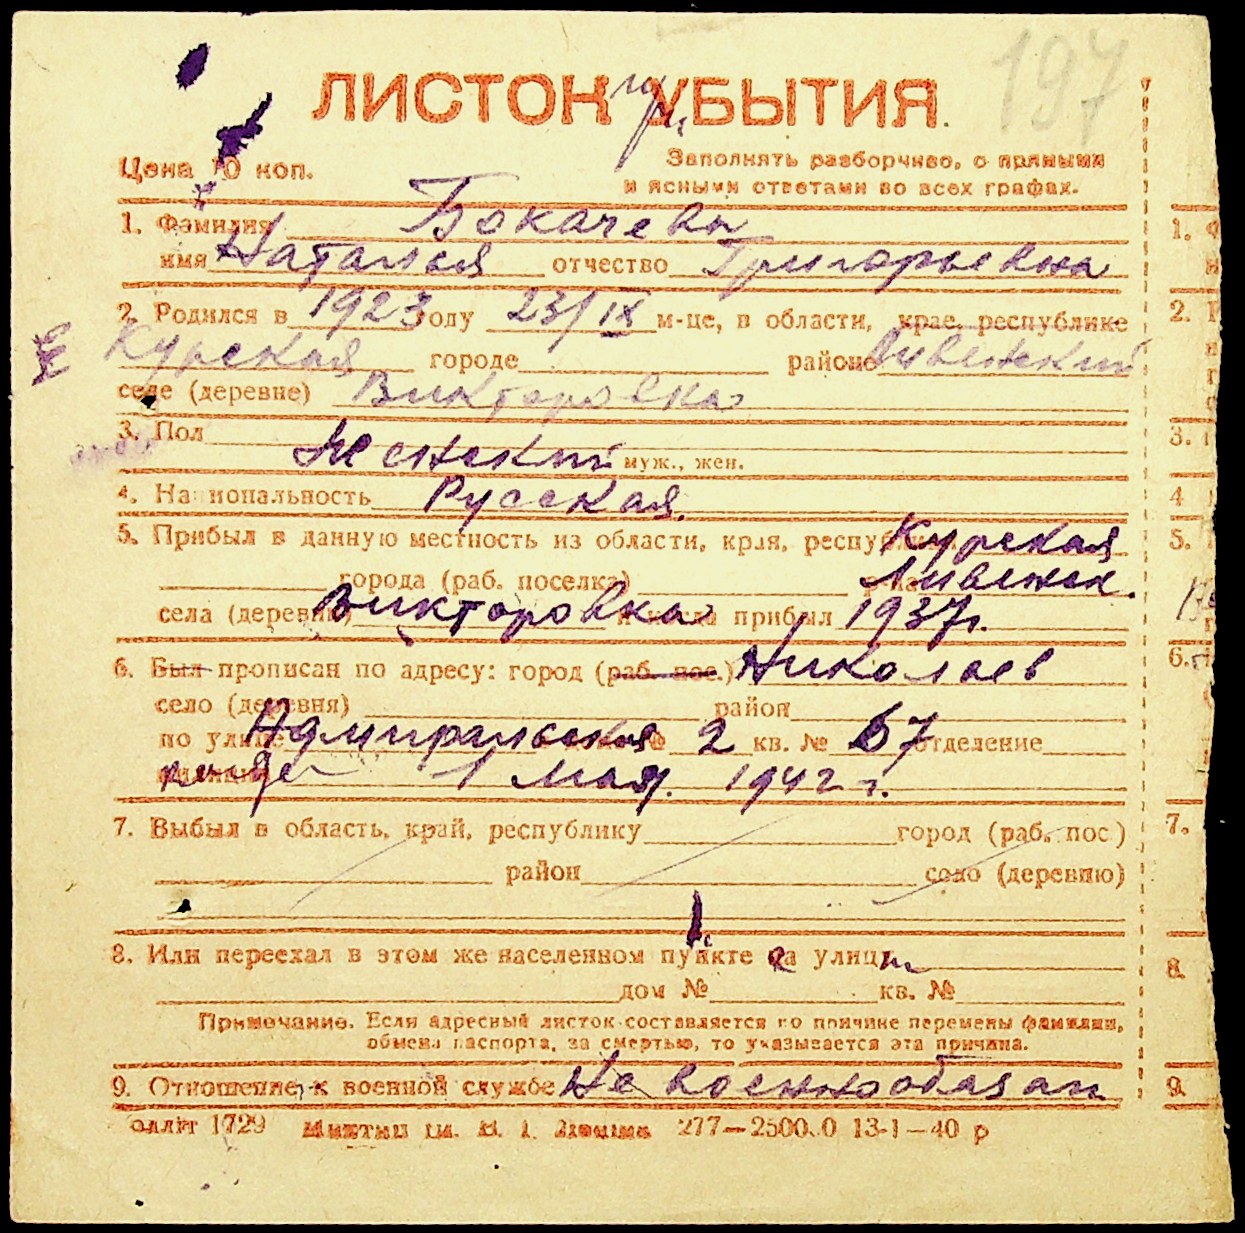 197
ЛИСТОК УБЫТИЯ
Цена 10 коп.
Заполнять разборчиво, с прямыми
и ясными ответами во всех графах.
1. Фамилия Бокачева
имя Наталья отчество Григорьевна
2. Родился в 1923 году 23/IX м-це, в области, крае, республике
Курская городе районе Ливенский
селе (деревне) Викторовка
3. Пол Женский муж., жен.
4. Национальность Русская.
5. Прибыл в данную местность из области, края, республики Курская
города (раб. поселка) Ливенск.
села (деревни) Викторовка и когда прибыл 1937г.
6. Был прописан по адресу: город (раб. пос.) Николаев
село (деревня) район
по улице Адмиральская № 2 кв. № 67 отделение
1 Мая. 1942 г.
7. Выбыл в область, край, республику город (раб. пос)
район село (деревню)
8. Или переехал в этом же населенном пункте на улицу
дом № кв. №
Примечание. Если адресный листок составляется по причине перемены фамилии,
обмена паспорта, за смертью, то указывается эта причина.
9. Отношение к военной службе Не военнообязан
1729 277—2500 0 13-1—40 р
1.
2.
3.
4
5.
6.
7.
8.
9.